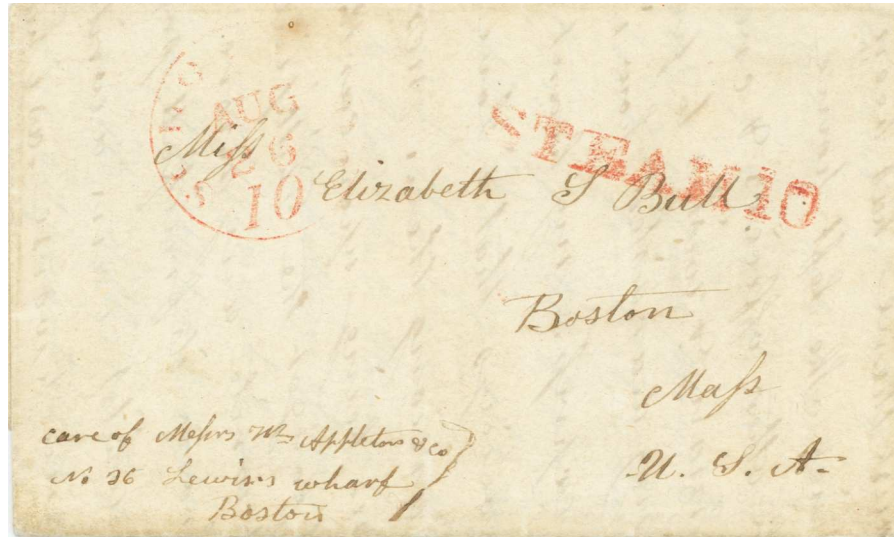 AUG
26
10
STEAM 10
Miſs
Elizabeth S Bull
Boston
Maſs
U. S. A.
care of Meſsrs Wm Appleton & Co
No 36 Lewis's wharf
Boston